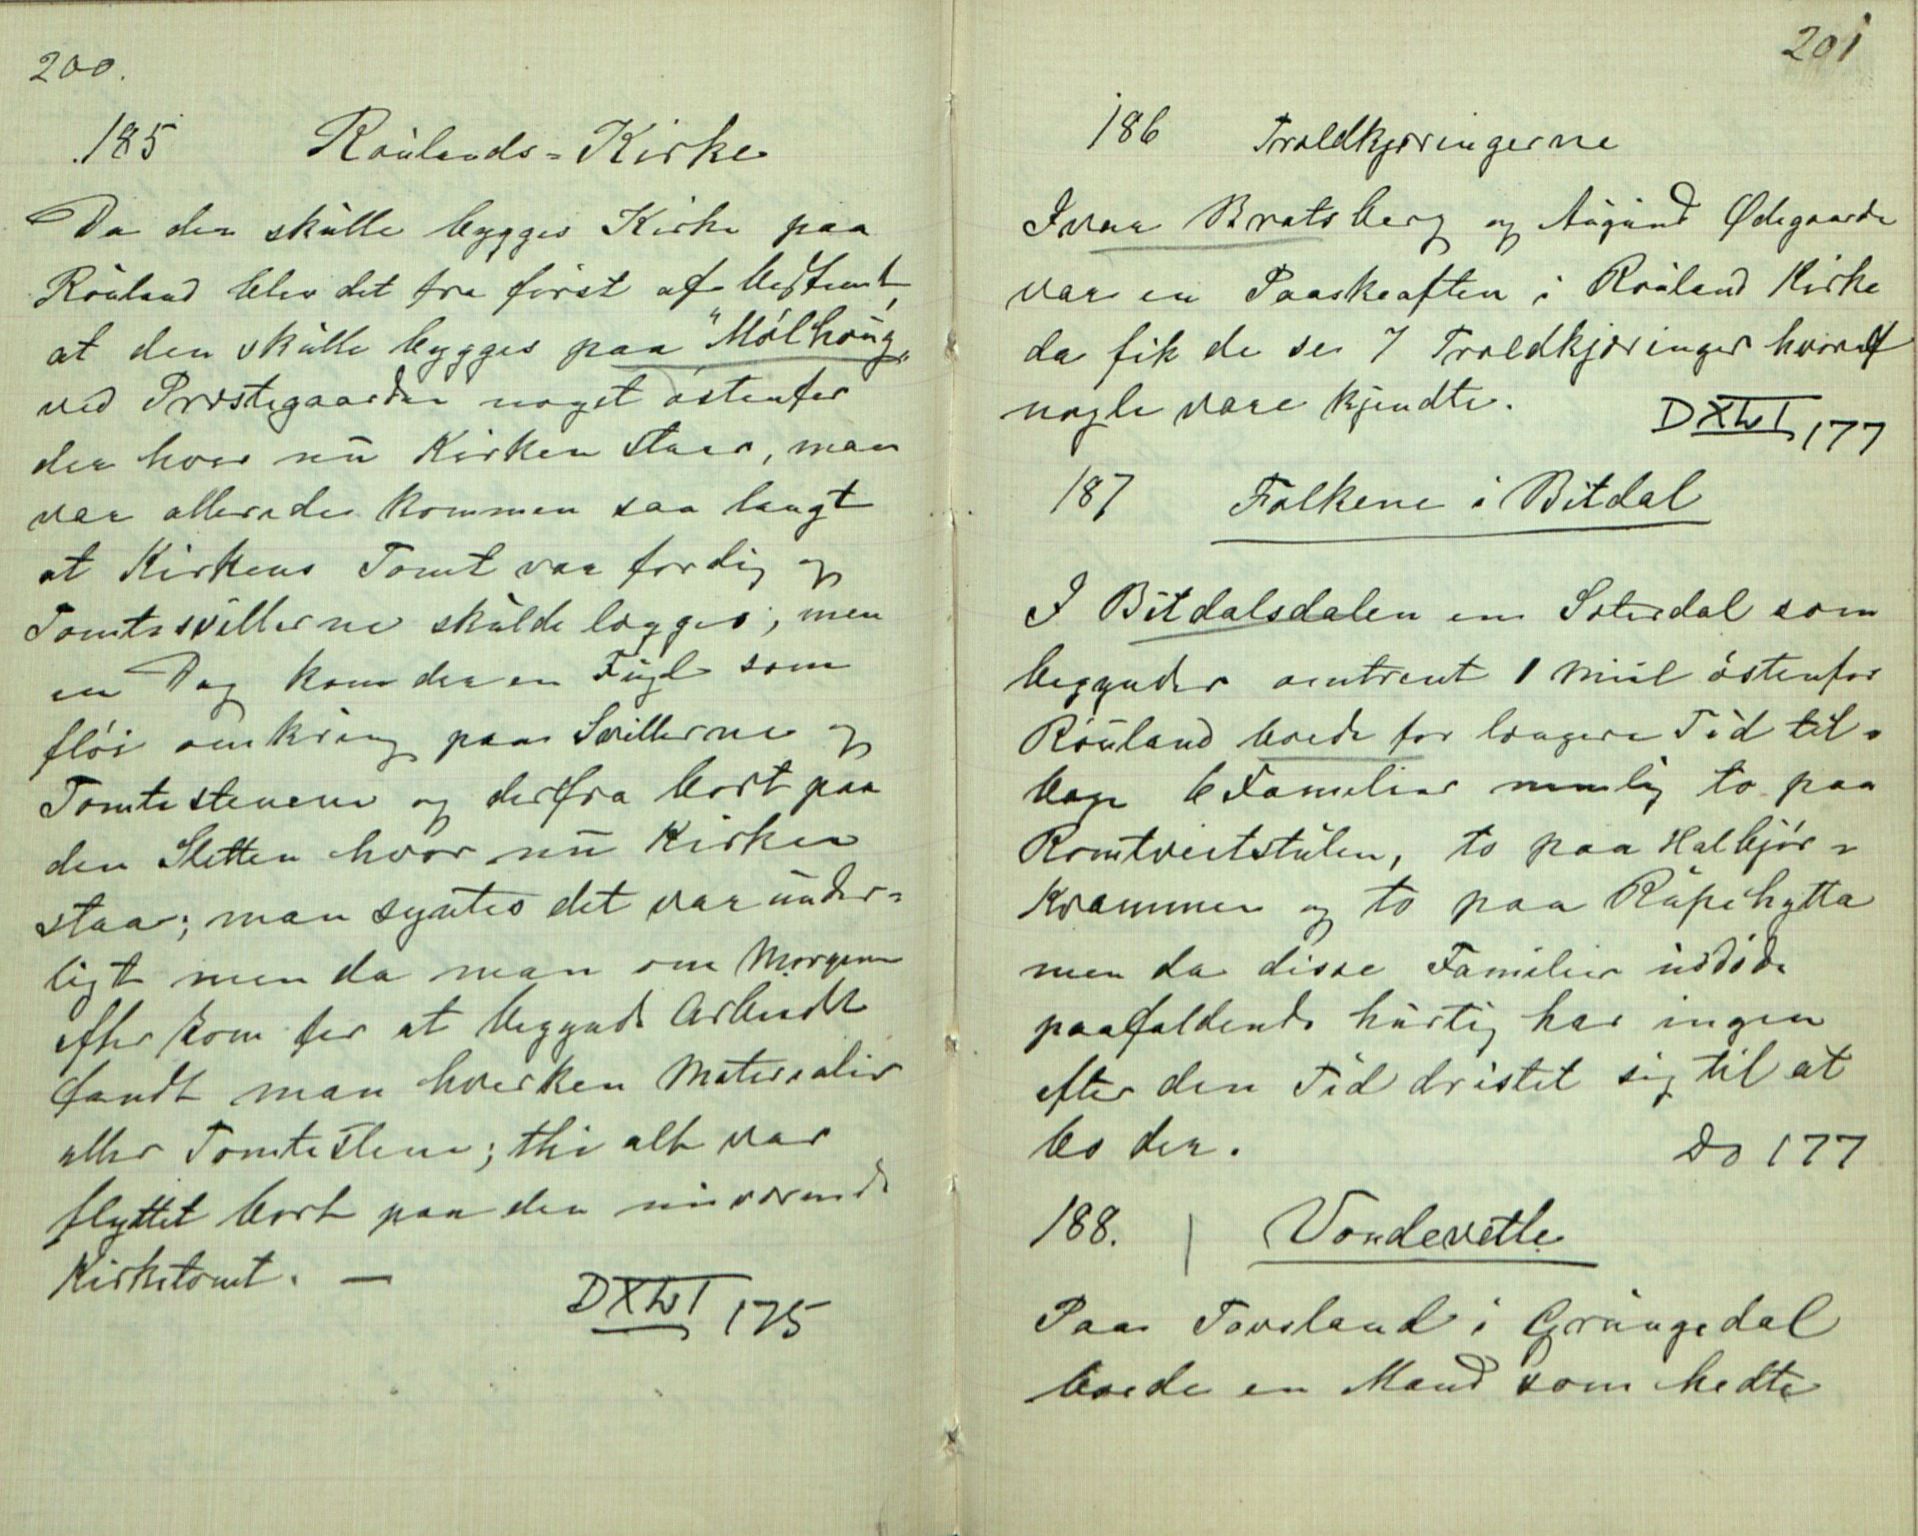 200.
185 Raulands-Kirke
Da der skulle bygges Kirke paa
Rauland blev det fra först af bestemt,
at den skulle bygges paa "Mólhoug"
ved Præstegaarden noget östenfor
der hvor nu Kirken staar, man
var allerede kommen saa langt
at Kirkens Tomt var færdig og
Tomtesvillerne skulde lægges, men
en Dag kom der en Fugl som
flói omkring paa Svillerne og
Tomtestenene og derfra bort paa
den Sletten hvor nu Kirken
staar; man syntes det var under=
ligt men da man om Morgenen
efter kom for at begynde Arbeidet
fandt man hverken Materialer
eller Tomtestene; thi alt var
flyttet bort paa den nuværende
Kirketomt. —
DXWI 175
201
186 Troldkjæringerne
Ivar Bratsberg og Augund Ødegaarde
var en Paaskeaften i Rauland Kirke
da fik de se 7 Troldkjæringer hvoraf
nogle vare kjendte.
DXWI 177
187 Folkene i Bitdal
I Bitdalsdalen en Sæterdal som
begynder omtrent 1 Miil östenfor
Rauland boede for længere Tid til=
bage 6 Familier nemlig to paa
Romtveitstulen, to paa Halbjór=
Krammen og to paa Rupehytta
men da disse Familier uddóde
paafaldende hurtig har ingen
efter den Tid dristet sig til at
bo der.
Do 177
188. Vondevetle
Paa Tovsland i Grungedal
boede en Mand som hedte